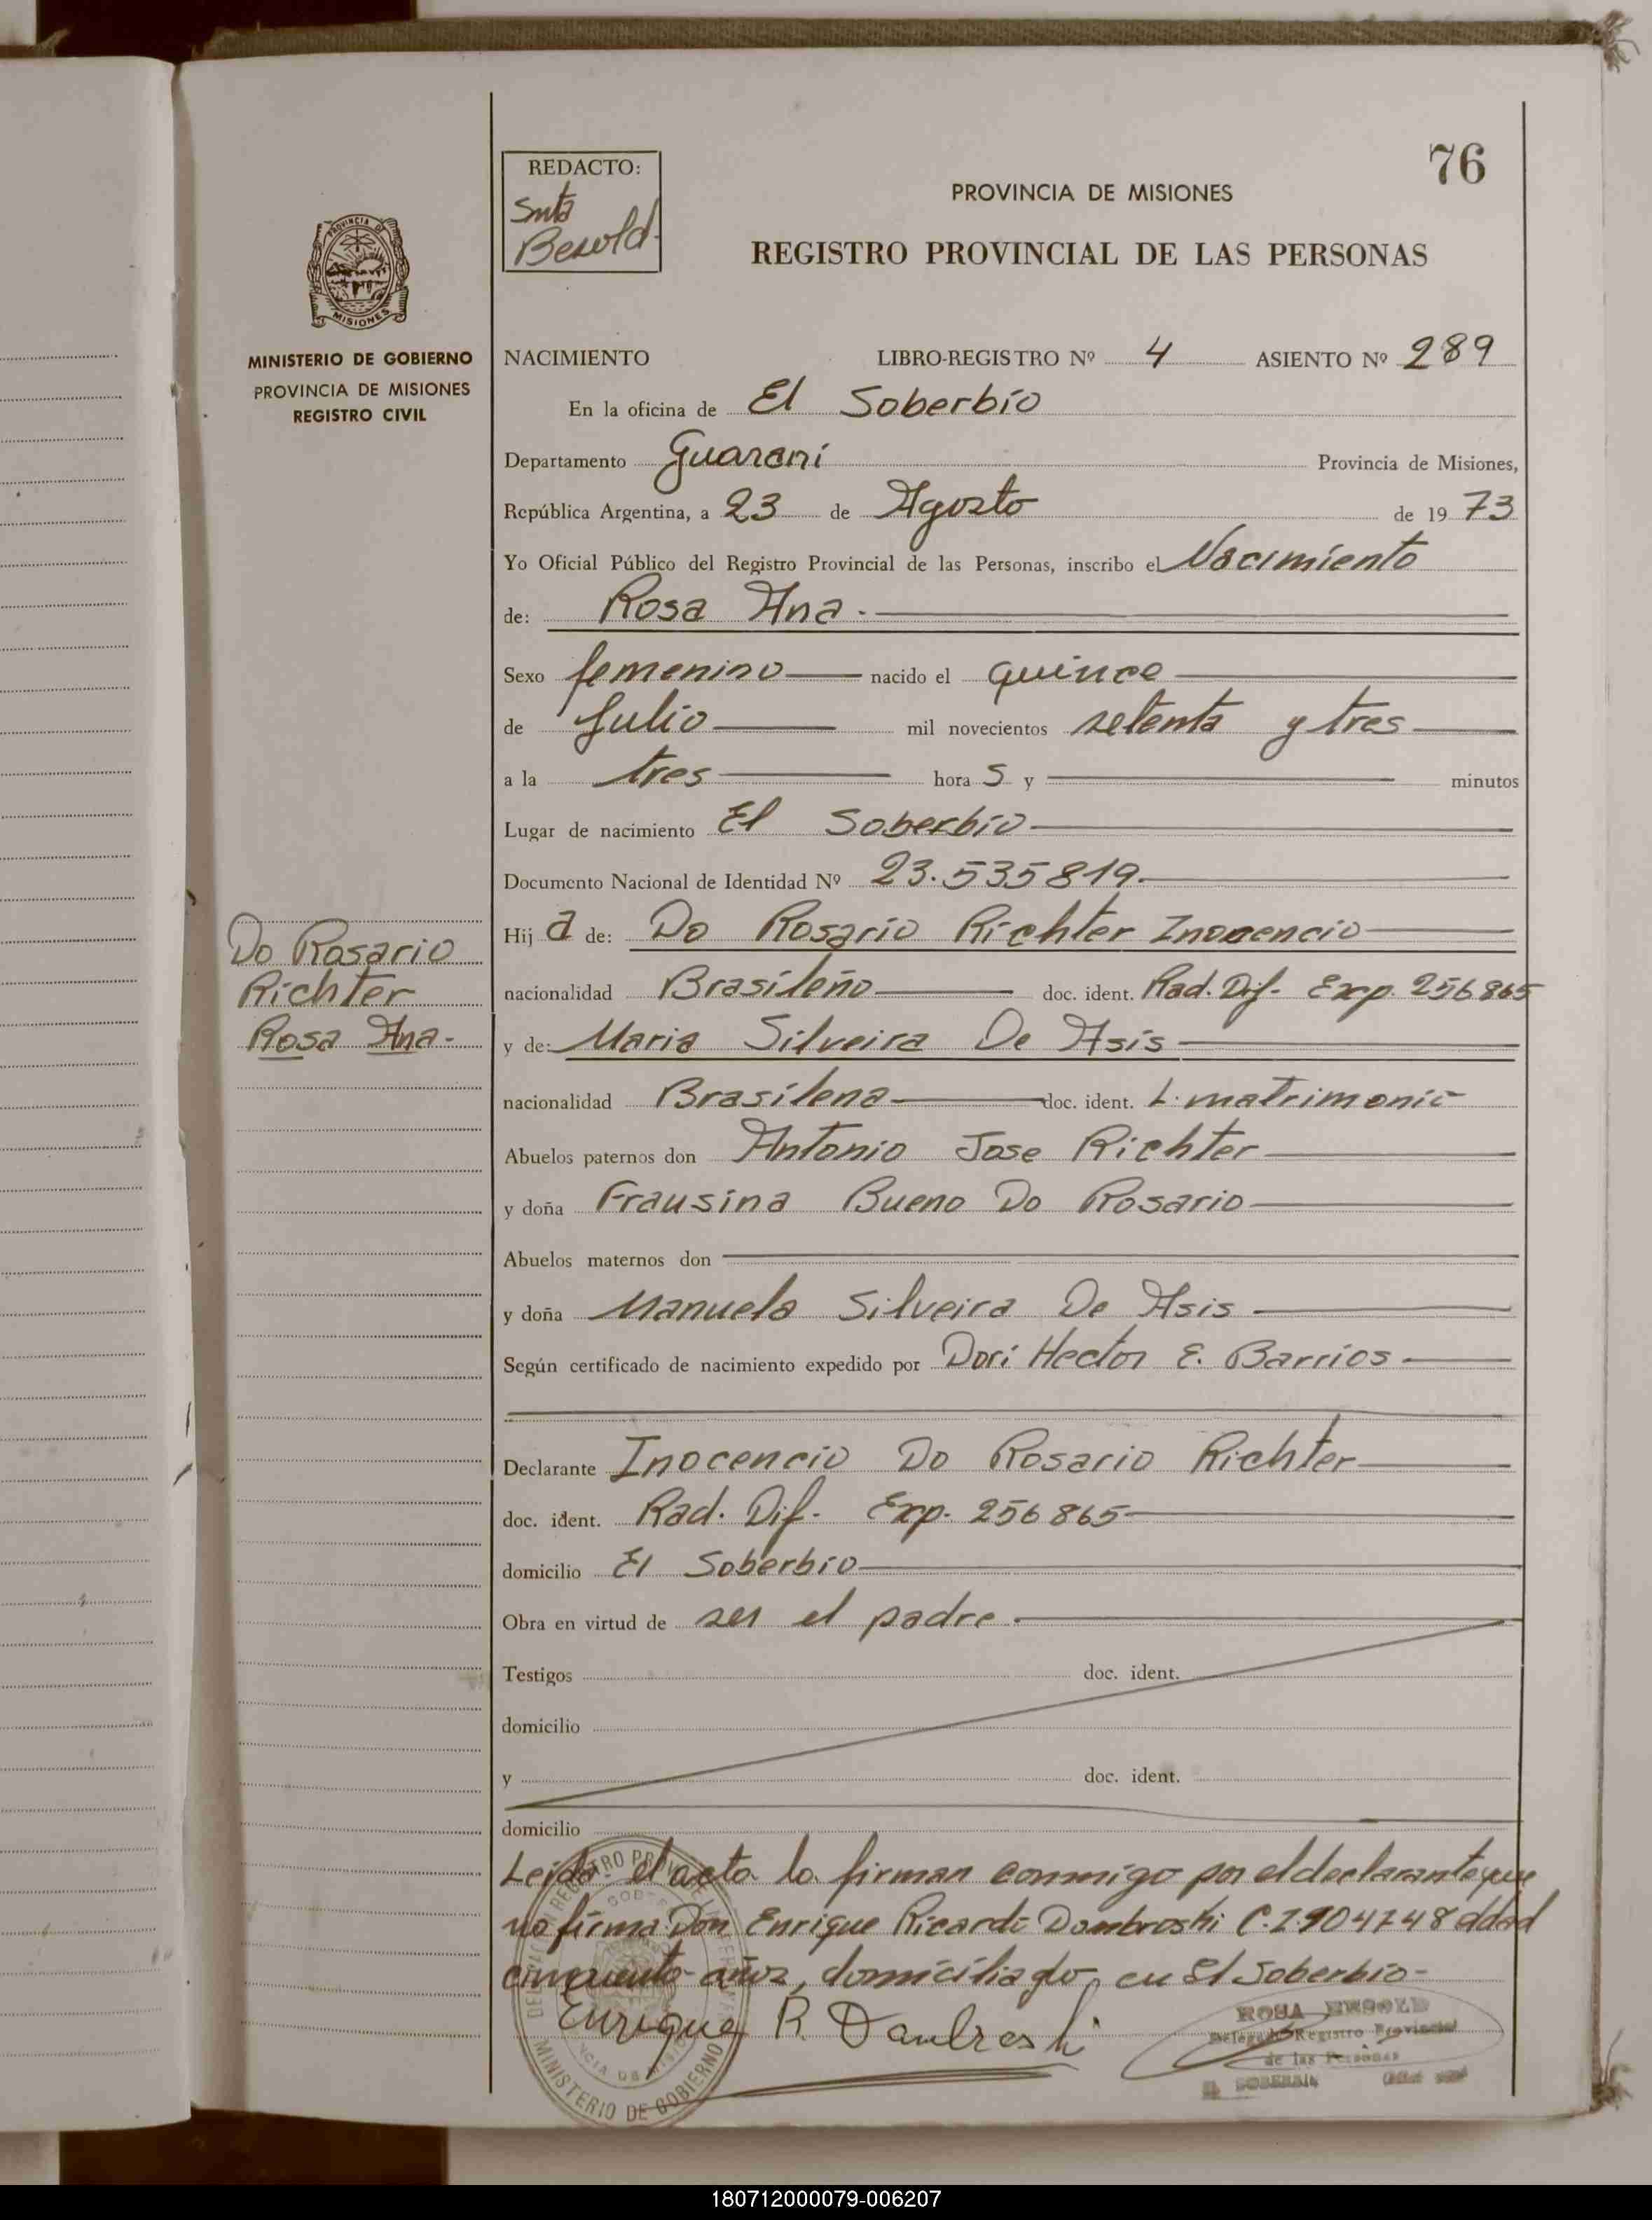 76
REDACTO:
Snta
Besold.
PROVINCIA DE MISIONES
REGISTRO PROVINCIAL DE LAS PERSONAS
PROVINCIA DE
MISIONES
MINISTERIO DE GOBIERNO
PROVINCIA DE MISIONES
REGISTRO CIVIL
NACIMIENTO LIBRO-REGISTRO Nº 4 ASIENTO Nº 289
En la oficina de El Soberbio
Departamento Guarani Provincia de Misiones,
República Argentina, a 23 de Agosto de 1973
Yo Oficial Público del Registro Provincial de las Personas, inscribo el Nacimiento
de: Rosa Ana.
Sexo femenino nacido el quince
de Julio mil novecientos setenta y tres
a la tres hora s y minutos
Lugar de nacimiento El Soberbio
Documento Nacional de Identidad Nº 23.535819.
Hij a de: Do Rosario Richter Inocencio
Do Rosario
Richter
Rosa Ana.-
nacionalidad Brasileño doc. ident. Rad. Dif. Exp. 256865
y de: Maria Silveira De Asis
nacionalidad Brasilena doc. ident. L. matrimonio
Abuelos paternos don Antonio Jose Richter
y doña Frausina Bueno Do Rosario
Abuelos maternos don
y doña Manuela Silveira De Asis
Según certificado de nacimiento expedido por Dori Hector E. Barrios
Declarante Inocencio Do Rosario Richter
doc. ident. Rad. Dif. Exp. 256865
domicilio El Soberbio
Obra en virtud de ser el padre.
Testigos doc. ident.
domicilio
y doc. ident.
domicilio
Leida el acta lo firman conmigo por el declarante que
no firma Don Enrique Ricardo Dombroski C.I. 904748 edad
cincuenta años, domiciliado en El Soberbio-
Enrique R. Dambroski
ROSA BESOLD
Delegado Registro Provincial
de las Personas
MINISTERIO DE GOBIERNO
180712000079-006207